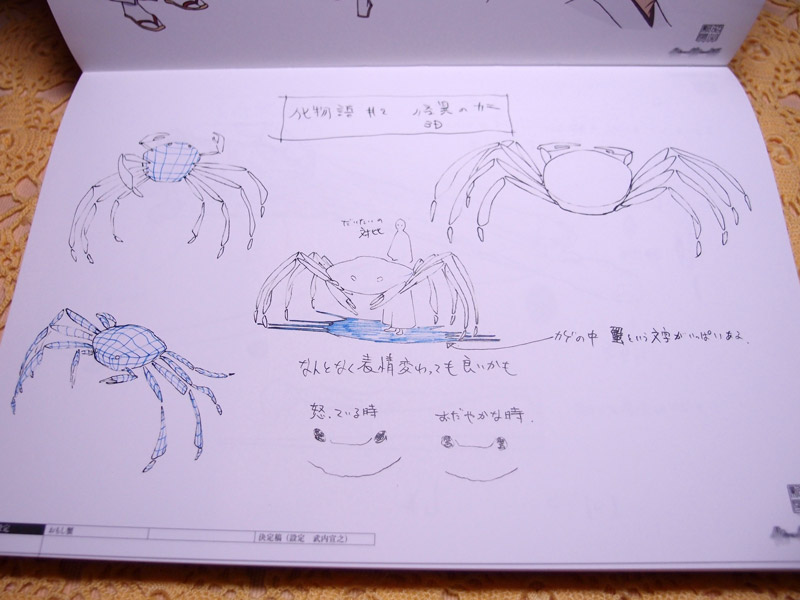 化物語 #2 怪異のカニ
3D
だいたいの
対比
カゲの中 蟹という文字がいっぱいある.
なんとなく表情変わっても良いかも
怒っている時
おだやかな時.
おもし蟹
決定稿(設定 武内宣之)